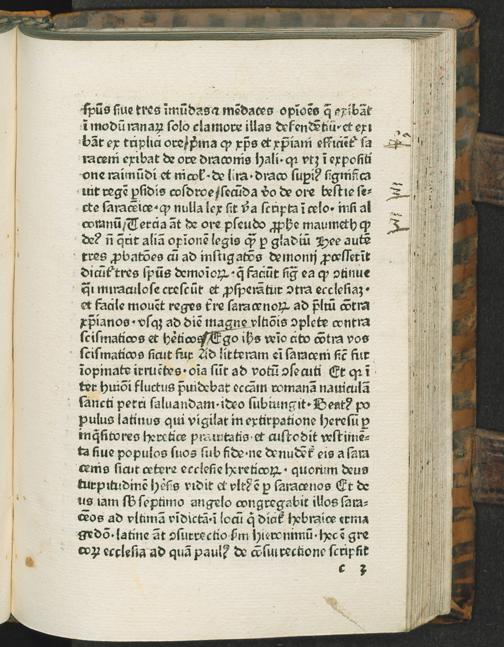 sp̄us siue tres īmūdas ⁊ mēdaces opiōes q̄ exibāt
ī modū ranaꝝ solo clamore illas defendētiū · et exi
bāt ex triplici ore / p̄ma qꝫ xp̄s et xp̄iani efficiēt̄ sa
raceni exibat de ore draconis hali · qꝫ vtꝫ ī expositi
one raimūdi et nicol̄ · de lira · draco supiꝰ significa
uit regē p̄sidis cosdroe / secūda v̄o de ore bestie se-
cte saracēice · qꝫ nulla lex sit v̄a scripta ī celo · nisi al
coranū / Tercia āt de ore pseudo ꝓph̄e maumeth qꝫ
deꝰ nō q̄rit aliā opionē legis q̄ꝫ ꝑ gladiū Hee autē
tres ꝓbatōes cū ad instigatōs demonij ꝓcesserīt
dicūt̄ tres sp̄us demoioꝝ · q̄ faciūt siḡ ea qꝫ ↄtinue
q̄i miraculose crescūt et ꝓsperātur ↄtra ecclesiaꝫ ·
et facile mouēt reges t̄re saracenoꝝ ad p̄ltū cōtra
xp̄ianos · vsqꝫ ad diē magne vltiōis ↄplete contra
scismaticos et hēticos / Ego ih̄s veīo cito cōtra vos
scismaticos sicut fur Ad litteram ei saraceni sic̄ fur
īopinate irruētes · oīa sūt ad votū ↄsecuti Et qꝫ ī
ter huiōi fluctus p̄uidebat eccām romanā nauiculā
sancti petri saluandam · ideo subiungit · Beatꝰ po
pulus latinus qui vigilat in extirpatione heresū ꝑ
inq̄sitores heretice prauitatis · et custodit vestimē-
ta siue populos suos sub fide · ne denudēt̄ eis a sara
cenis sicut cetere ecclesie hereticoꝝ · quorum deus
turpitudinē hēsis vidit et vltꝰ ē ꝑ saracenos Et de
us iam sb̄ septimo angelo congregabit illos sara-
cēos ad vltimā vīdictā · ī locū q̄ dicit̄ hebraice erma
gedō · latine āt ↄsurrectio s̄m hieronimū · hec ē gre
coꝝ ecclesia ad quā paulꝰ de cōsurrectione scripsit
c 3